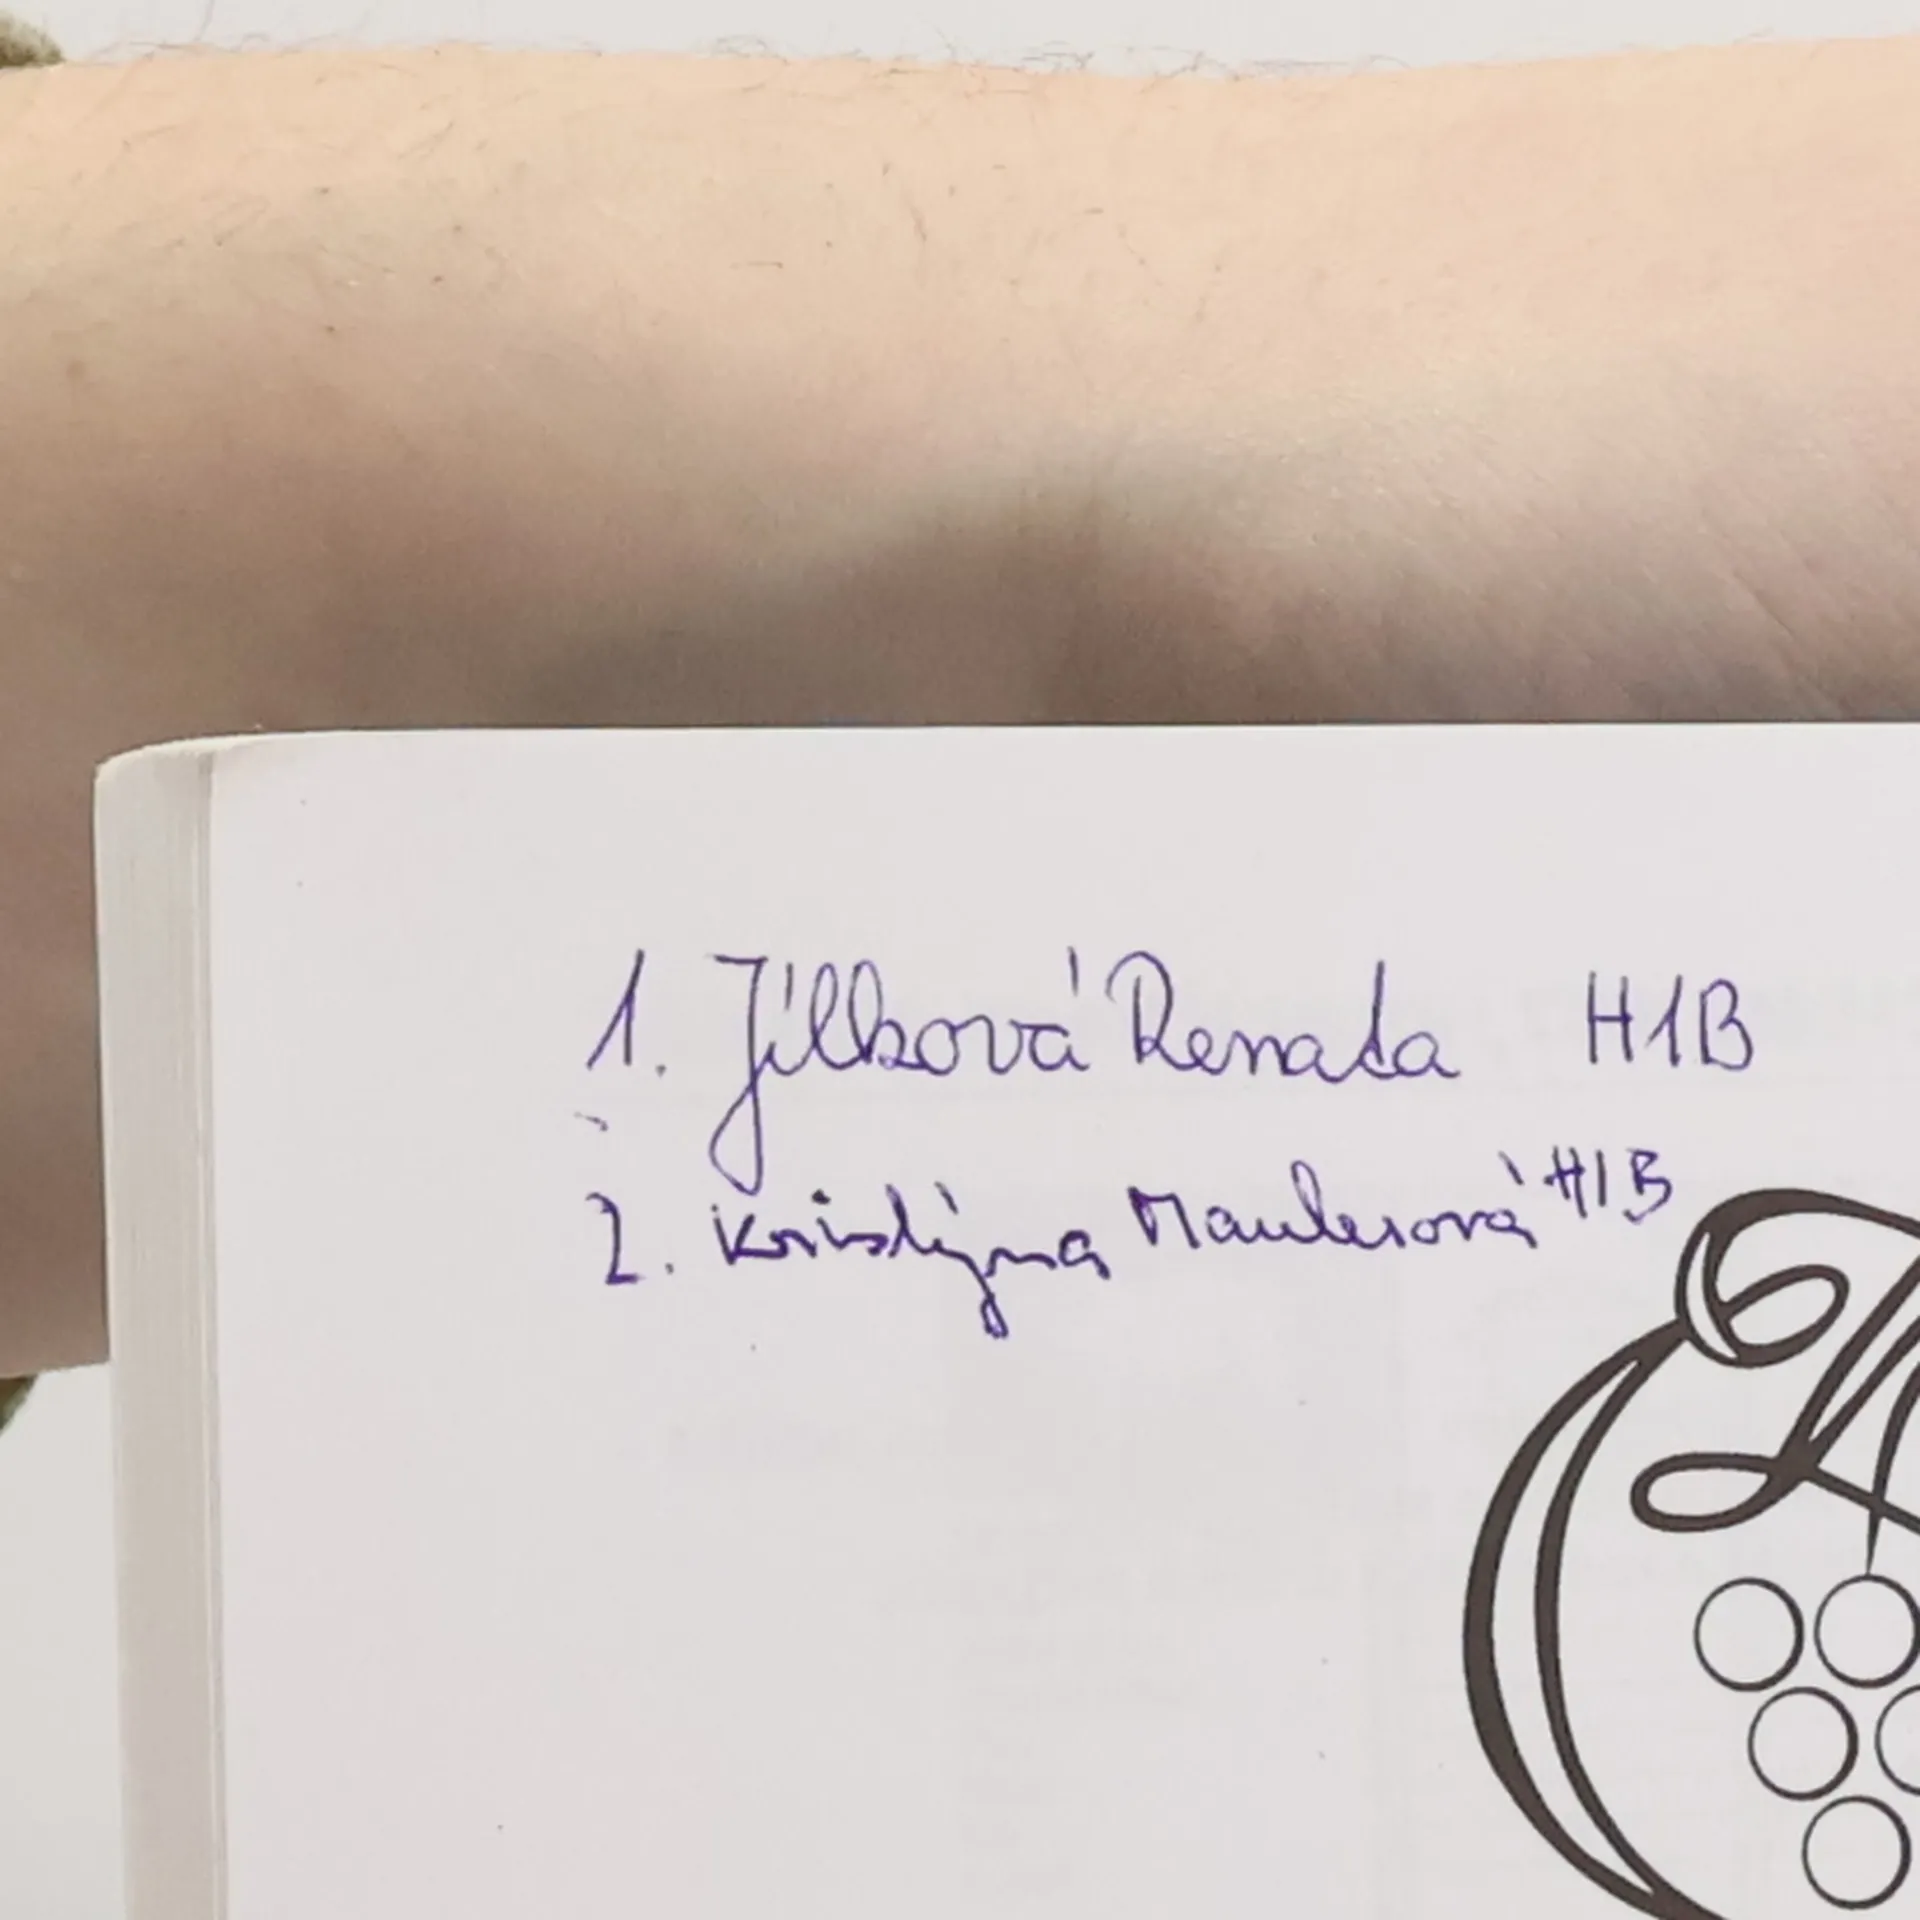 1. Jílková Renata H1B
2. Kristýna Maulerová H1B